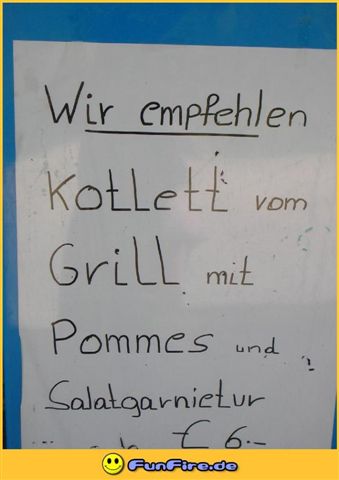 Wir empfehlen
Kotlett vom
Grill mit
Pommes und
Salatgarnietur
€ 6.-
FunFire.de